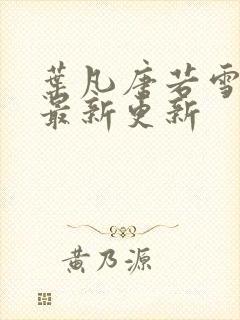 葉凡唐若雪
最新更新
黄乃源